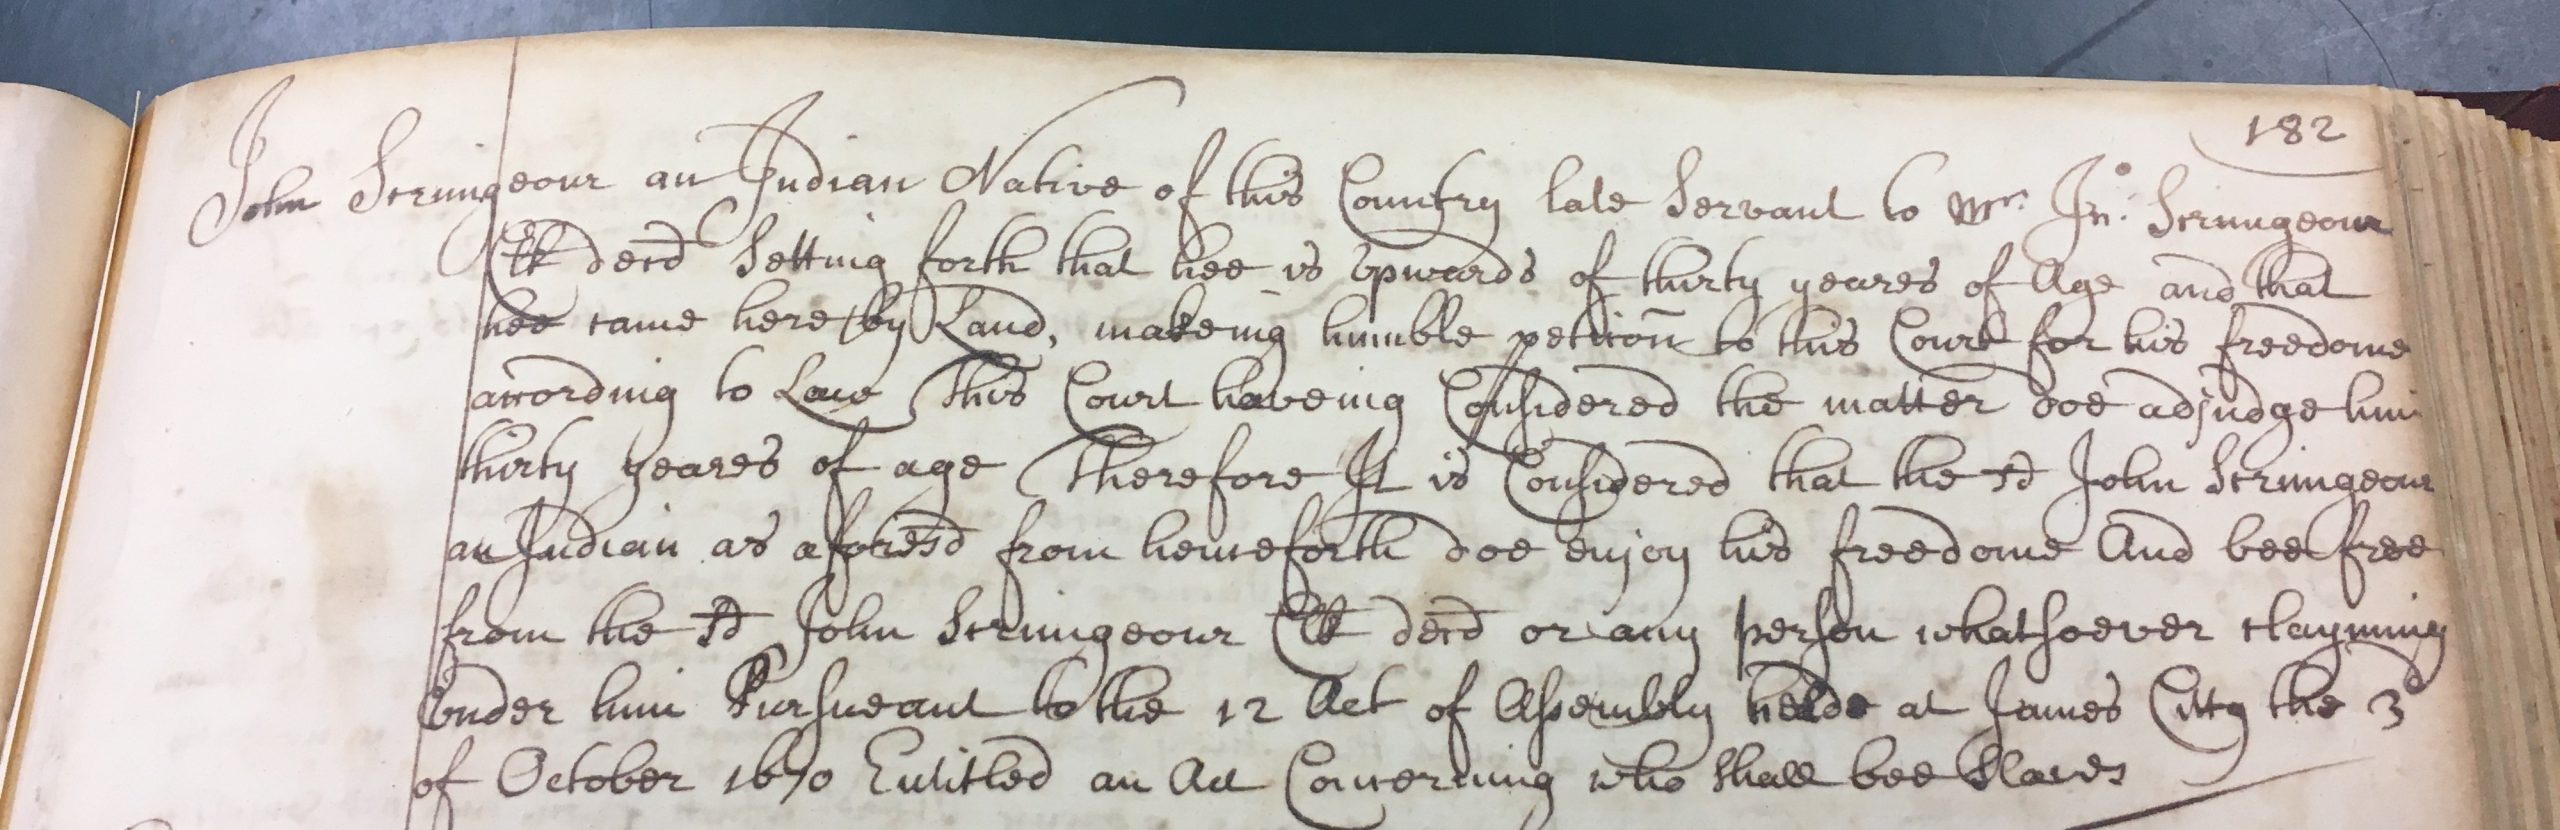 182
John Scrimgeour an Indian Native of this Country late Servant to Mr. Jno: Scrimgeour
Clk decd Setting forth that hee is upwards of thirty yeares of Age and that
hee came here by Land, makeing humble petic̄on to this Court for his freedome
according to Law This Court haveing Considered the matter doe adjudge him
thirty yeares of age Therefore It is Considered that the sd John Scrimgeour
an Indian as aforesd from henceforth doe enjoy his freedome And bee free
from the sd John Scrimgeour Clk decd or any person whatsoever clayming
under him Pursueant to the 12 Act of Assembly helde at James Citty the 3d
of October 1670 Entitled an Act Concerning who shall bee Slaves